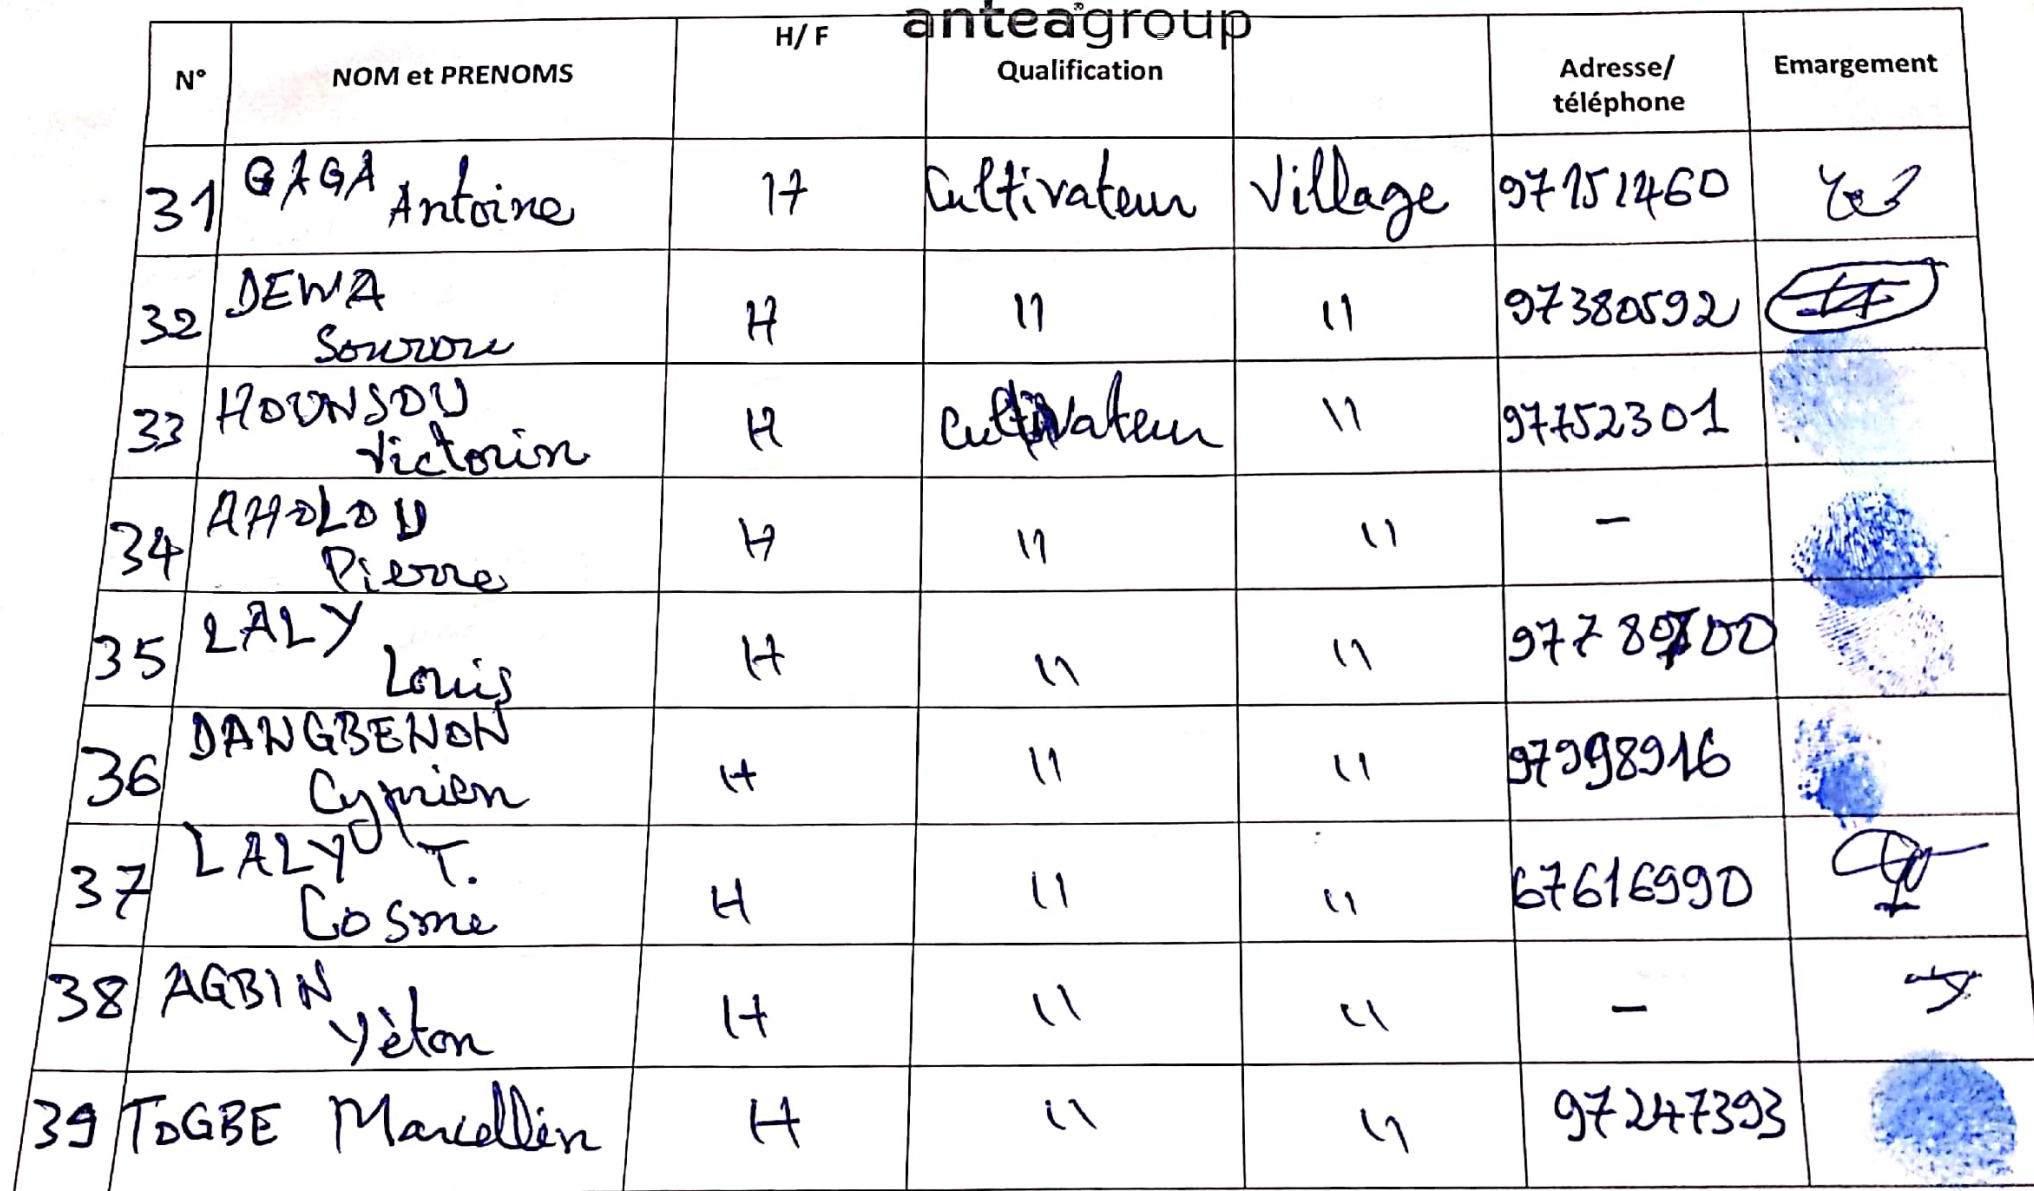 anteagroup
N° NOM et PRENOMS H/ F Qualification Adresse/ téléphone Emargement
31 GAGA Antoine H Cultivateur Village 97151460
32 DEWA Sourou H 11 11 97380592
33 HOUNSOU Victorin H Cultivateur 11 97752301
34 AHOLOU Pierre H 11 11 -
35 LALY Louis H 11 11
36 DANGBENON Cyprien H 11 11 97998916
37 LALY T. Cosme H 11 11 67616990
38 AGBIN Yèton H 11 11 -
39 TOGBE Marcellin H 11 11 97247393